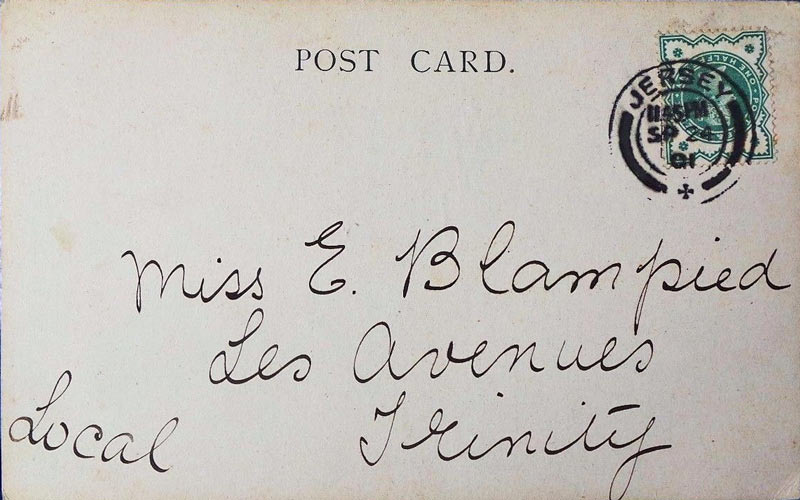 POST CARD.
JERSEY
11.45PM
SP 24
01
Miss E. Blampied
Les Avenues
Local Trinity